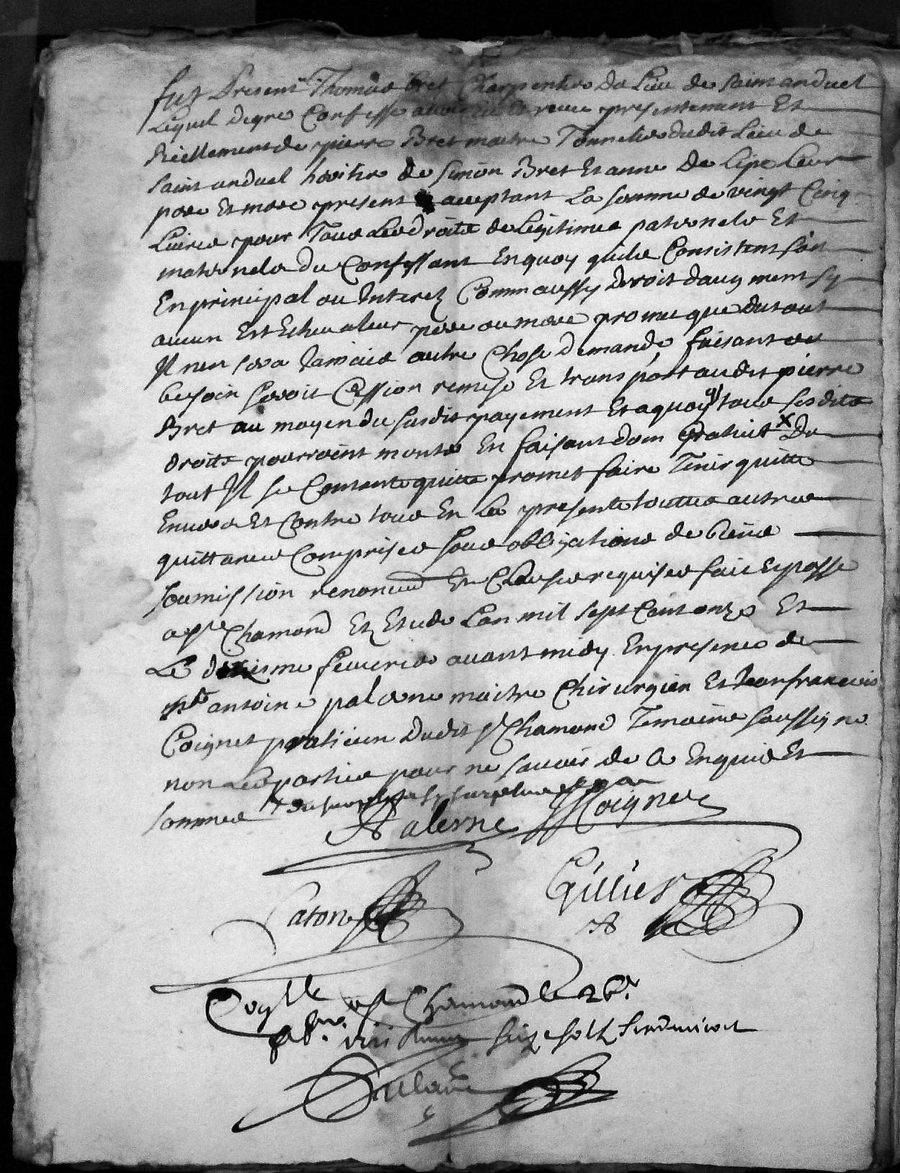 fut Present Thomas bret Charpentier du Lieu de saint anduel
Lequel de gre Confesse avoir receu presentement Et
Reellement de pierre Bret maitre Tonnelier dudit Lieu de
Saint anduel heritier de Simon Bret Et anne de Lepe Leur
pere Et mere present acceptant La somme de vingt Cinq
Livres pour Tous Les droits de Legitimes paternels Et
maternels du Confessant En quoy quils Consistent soit
En principal ou Interez Comm aussy droit daugment sy
aucun Est Echeu a leurs pere ou mere promet que du tout
Il nen sera Jamais autre Chose demande faisant au
besoin Seroit Cession remise Et transport audit pierre
Bret au moyen du susdit payement Et a quoy tous Sesdits
droits pourroient monter En faisant dom gratuit x Du
tout Il se Contente quitte promet faire Tenir quitte
Envers Et Contre tous En Les presente touttes autres
quittances Comprises sous obligations de biens
soumission renonciaôn Et Clauses requises fait Et passé
a st Chamond Ez Etude Lan mil sept Cent onze Et
Le dixisme feuvrier avant midy En presence de
me antoine palerne maitre Chirurgien Et Jean francois
Coignet praticien dudit st Chamond Temoins Soussigne
non Les parties pour ne savoir de Ce Enquis Et
sommes x du surplus
Palerne JfCoignet
Gillier
Coller a st Chamond le 26e